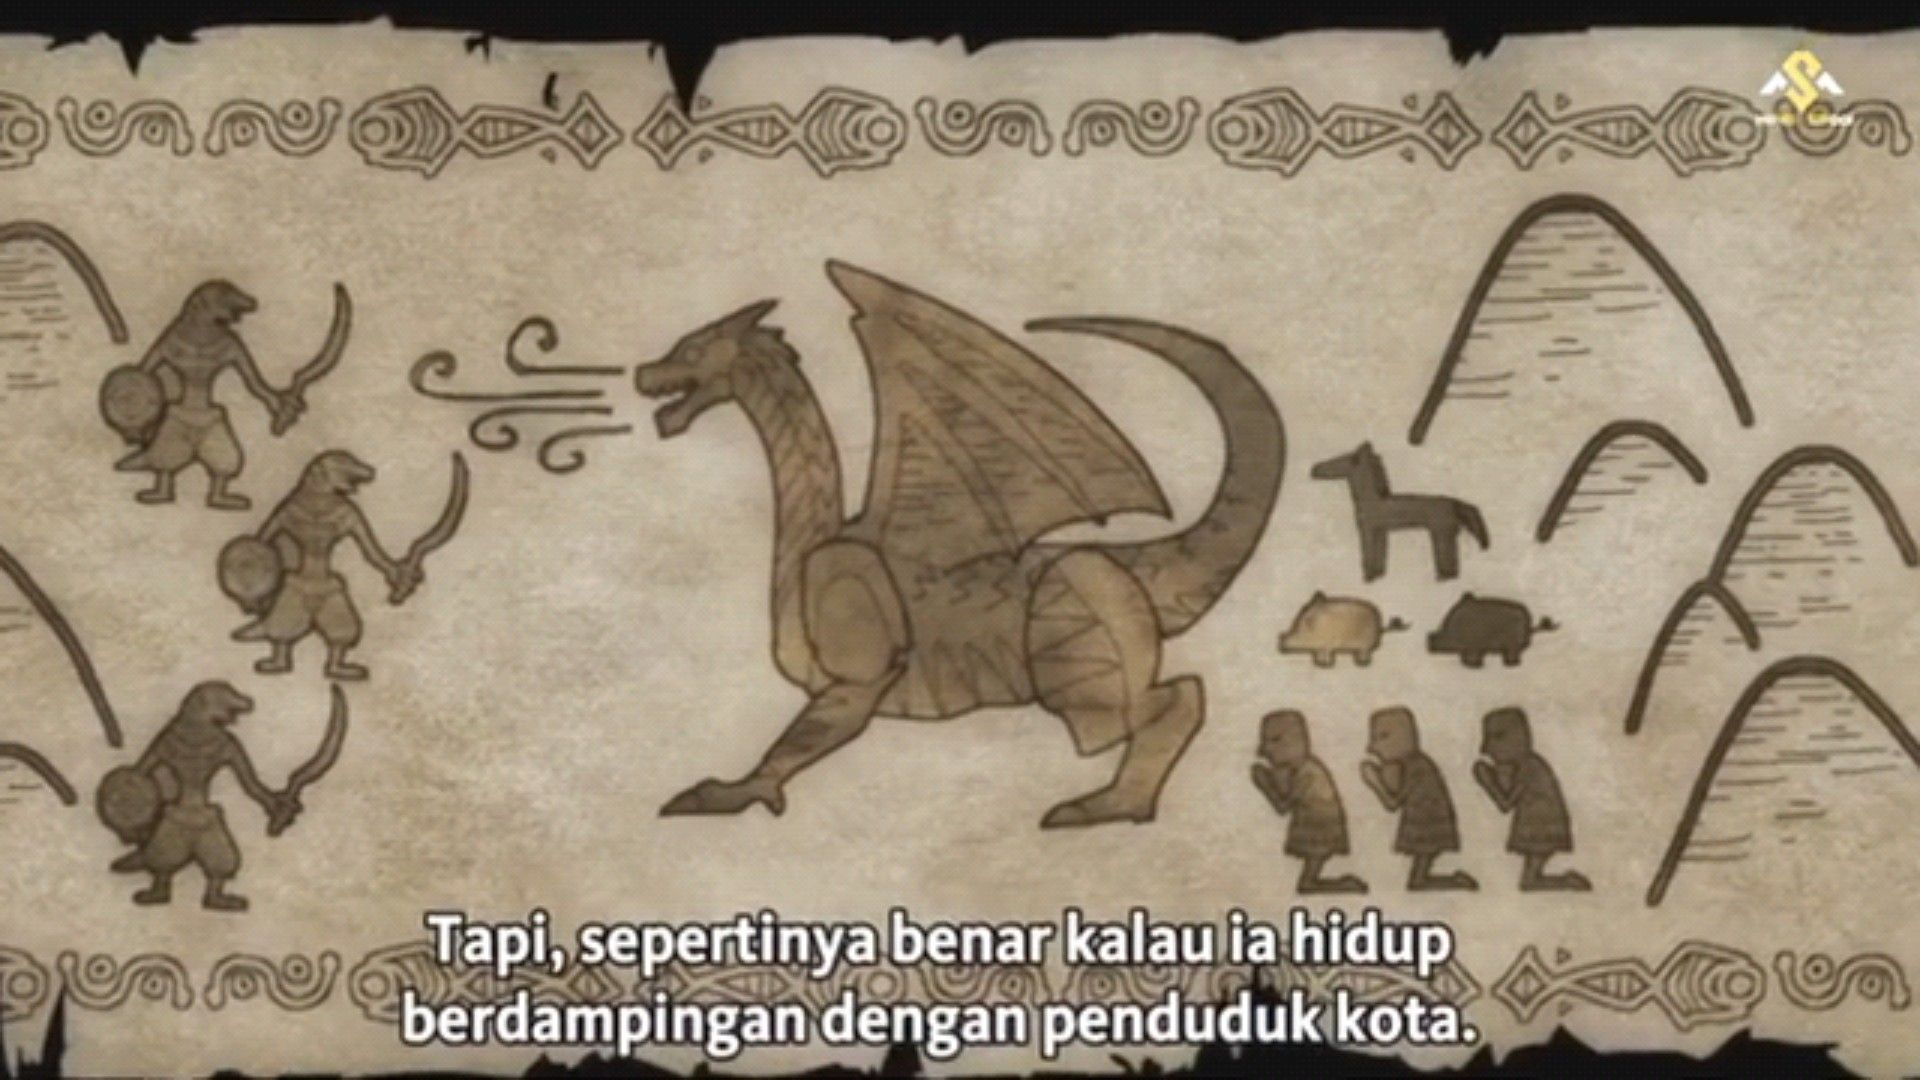 Tapi, sepertinya benar kalau ia hidup
berdampingan dengan penduduk kota.